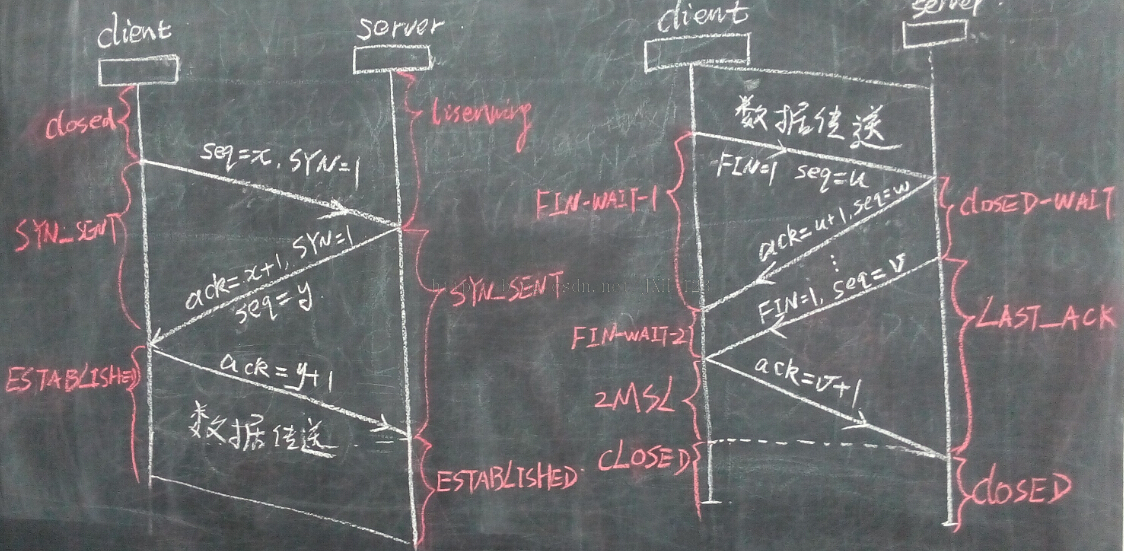 client
server
closed
lisenning
seq=x, SYN=1
SYN_SENT
ack=x+1, SYN=1
seq=y
SYN_SENT
ESTABLISHED
ack=y+1
数据传送
ESTABLISHED
client
server
数据传送
FIN=1 seq=u
FIN-WAIT-1
ClOSED-WAIT
ack=u+1, seq=w
FIN=1, seq=v
LAST_ACK
FIN-WAIT-2
ack=v+1
2MSL
CLOSED
ClOSED